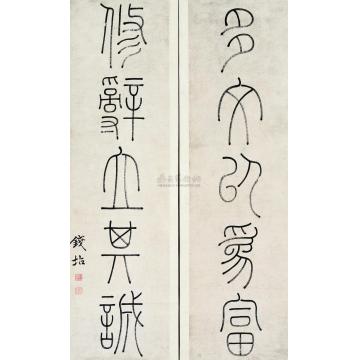 多文以為富
修辭立其誠
錢坫